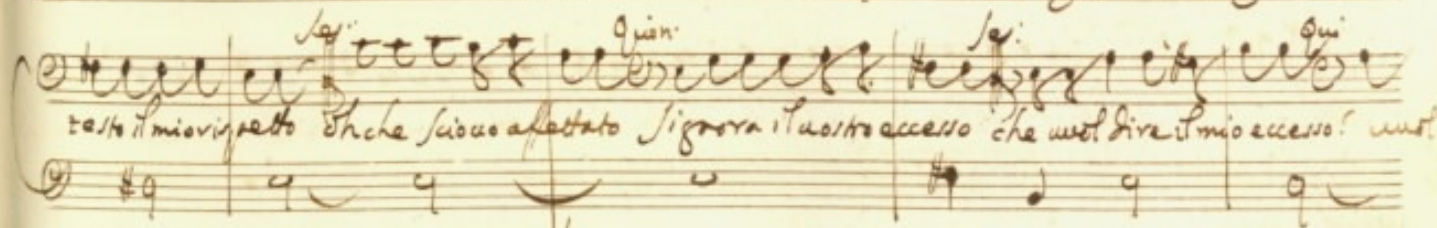 Ser: Quon. Ser: Qui
testo il mio rispetto Oh che sciocco affettato Signora il uostro eccesso che uuol dire il mio eccesso? uuol